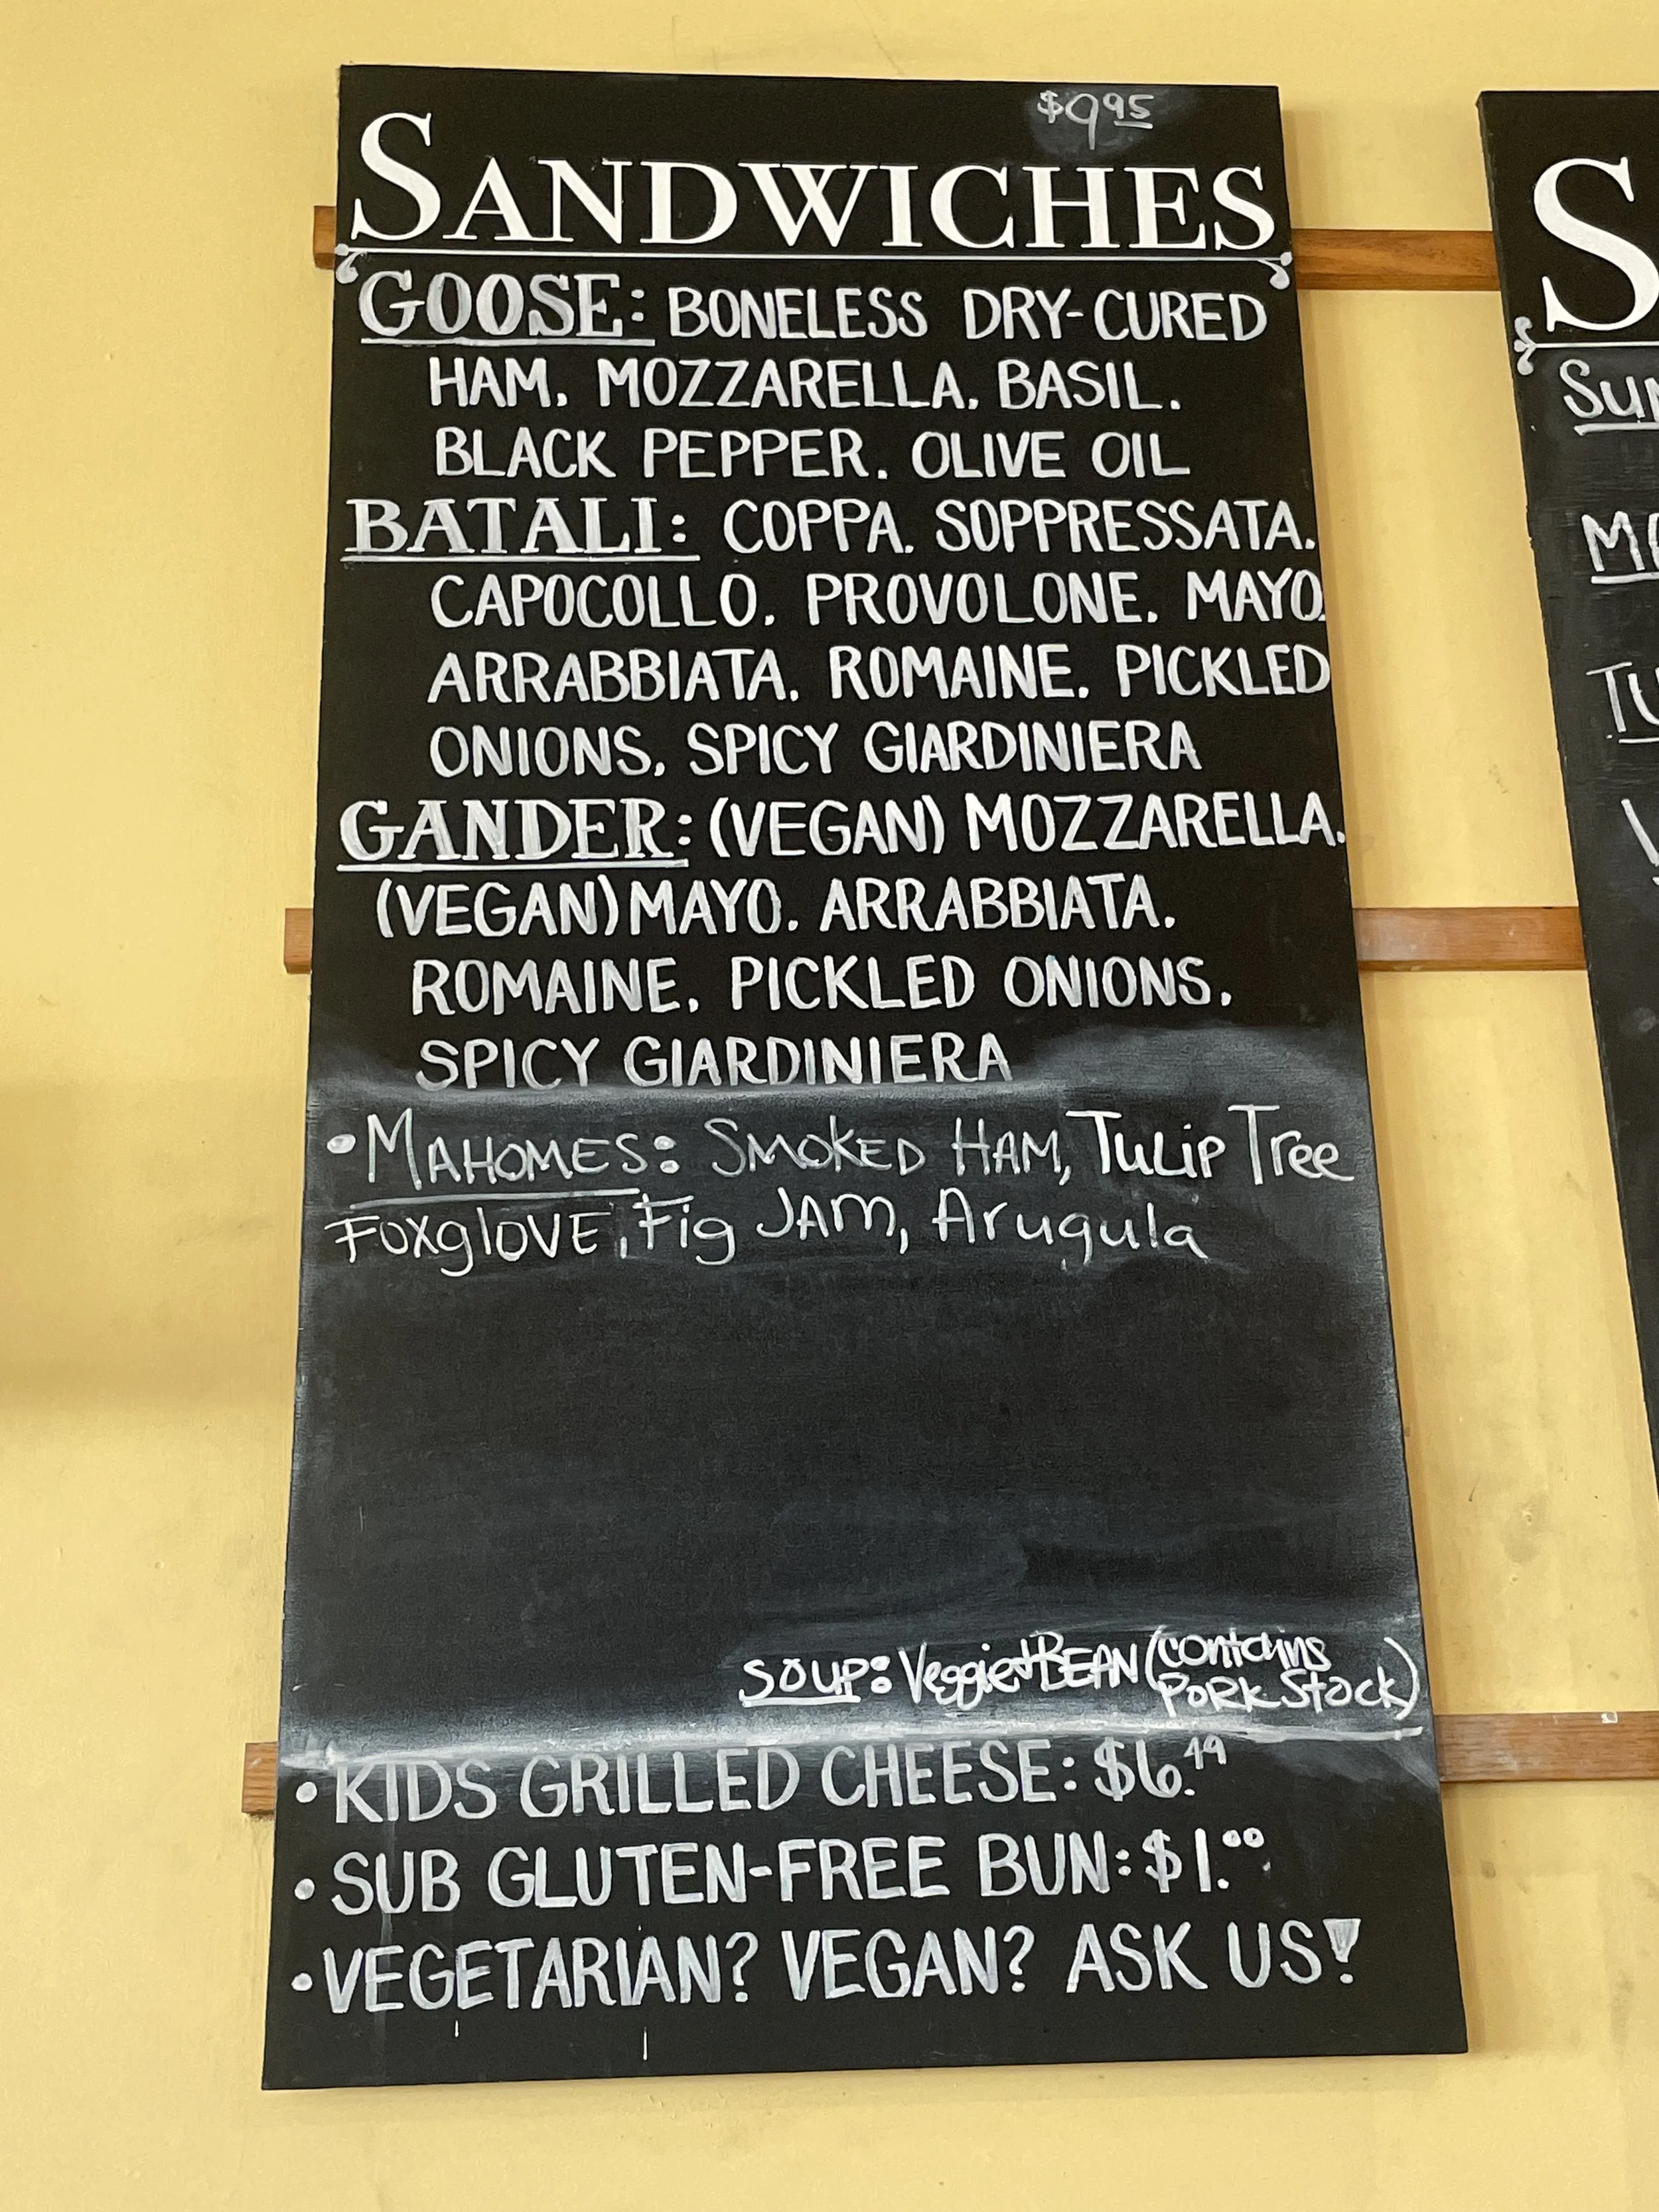 $9.95
SANDWICHES
GOOSE: BONELESS DRY-CURED
HAM. MOZZARELLA. BASIL.
BLACK PEPPER. OLIVE OIL
BATALI: COPPA. SOPPRESSATA.
CAPOCOLLO. PROVOLONE. MAYO.
ARRABBIATA. ROMAINE. PICKLED
ONIONS. SPICY GIARDINIERA
GANDER: (VEGAN) MOZZARELLA.
(VEGAN) MAYO. ARRABBIATA.
ROMAINE. PICKLED ONIONS.
SPICY GIARDINIERA
• MAHOMES: SMOKED HAM, TULIP Tree
FOXglOVE, Fig JAM, Arugula
SOUP: Veggie + BEAN (contains
PORK Stock)
• KIDS GRILLED CHEESE: $6.49
• SUB GLUTEN-FREE BUN: $1.00
• VEGETARIAN? VEGAN? ASK US!
S